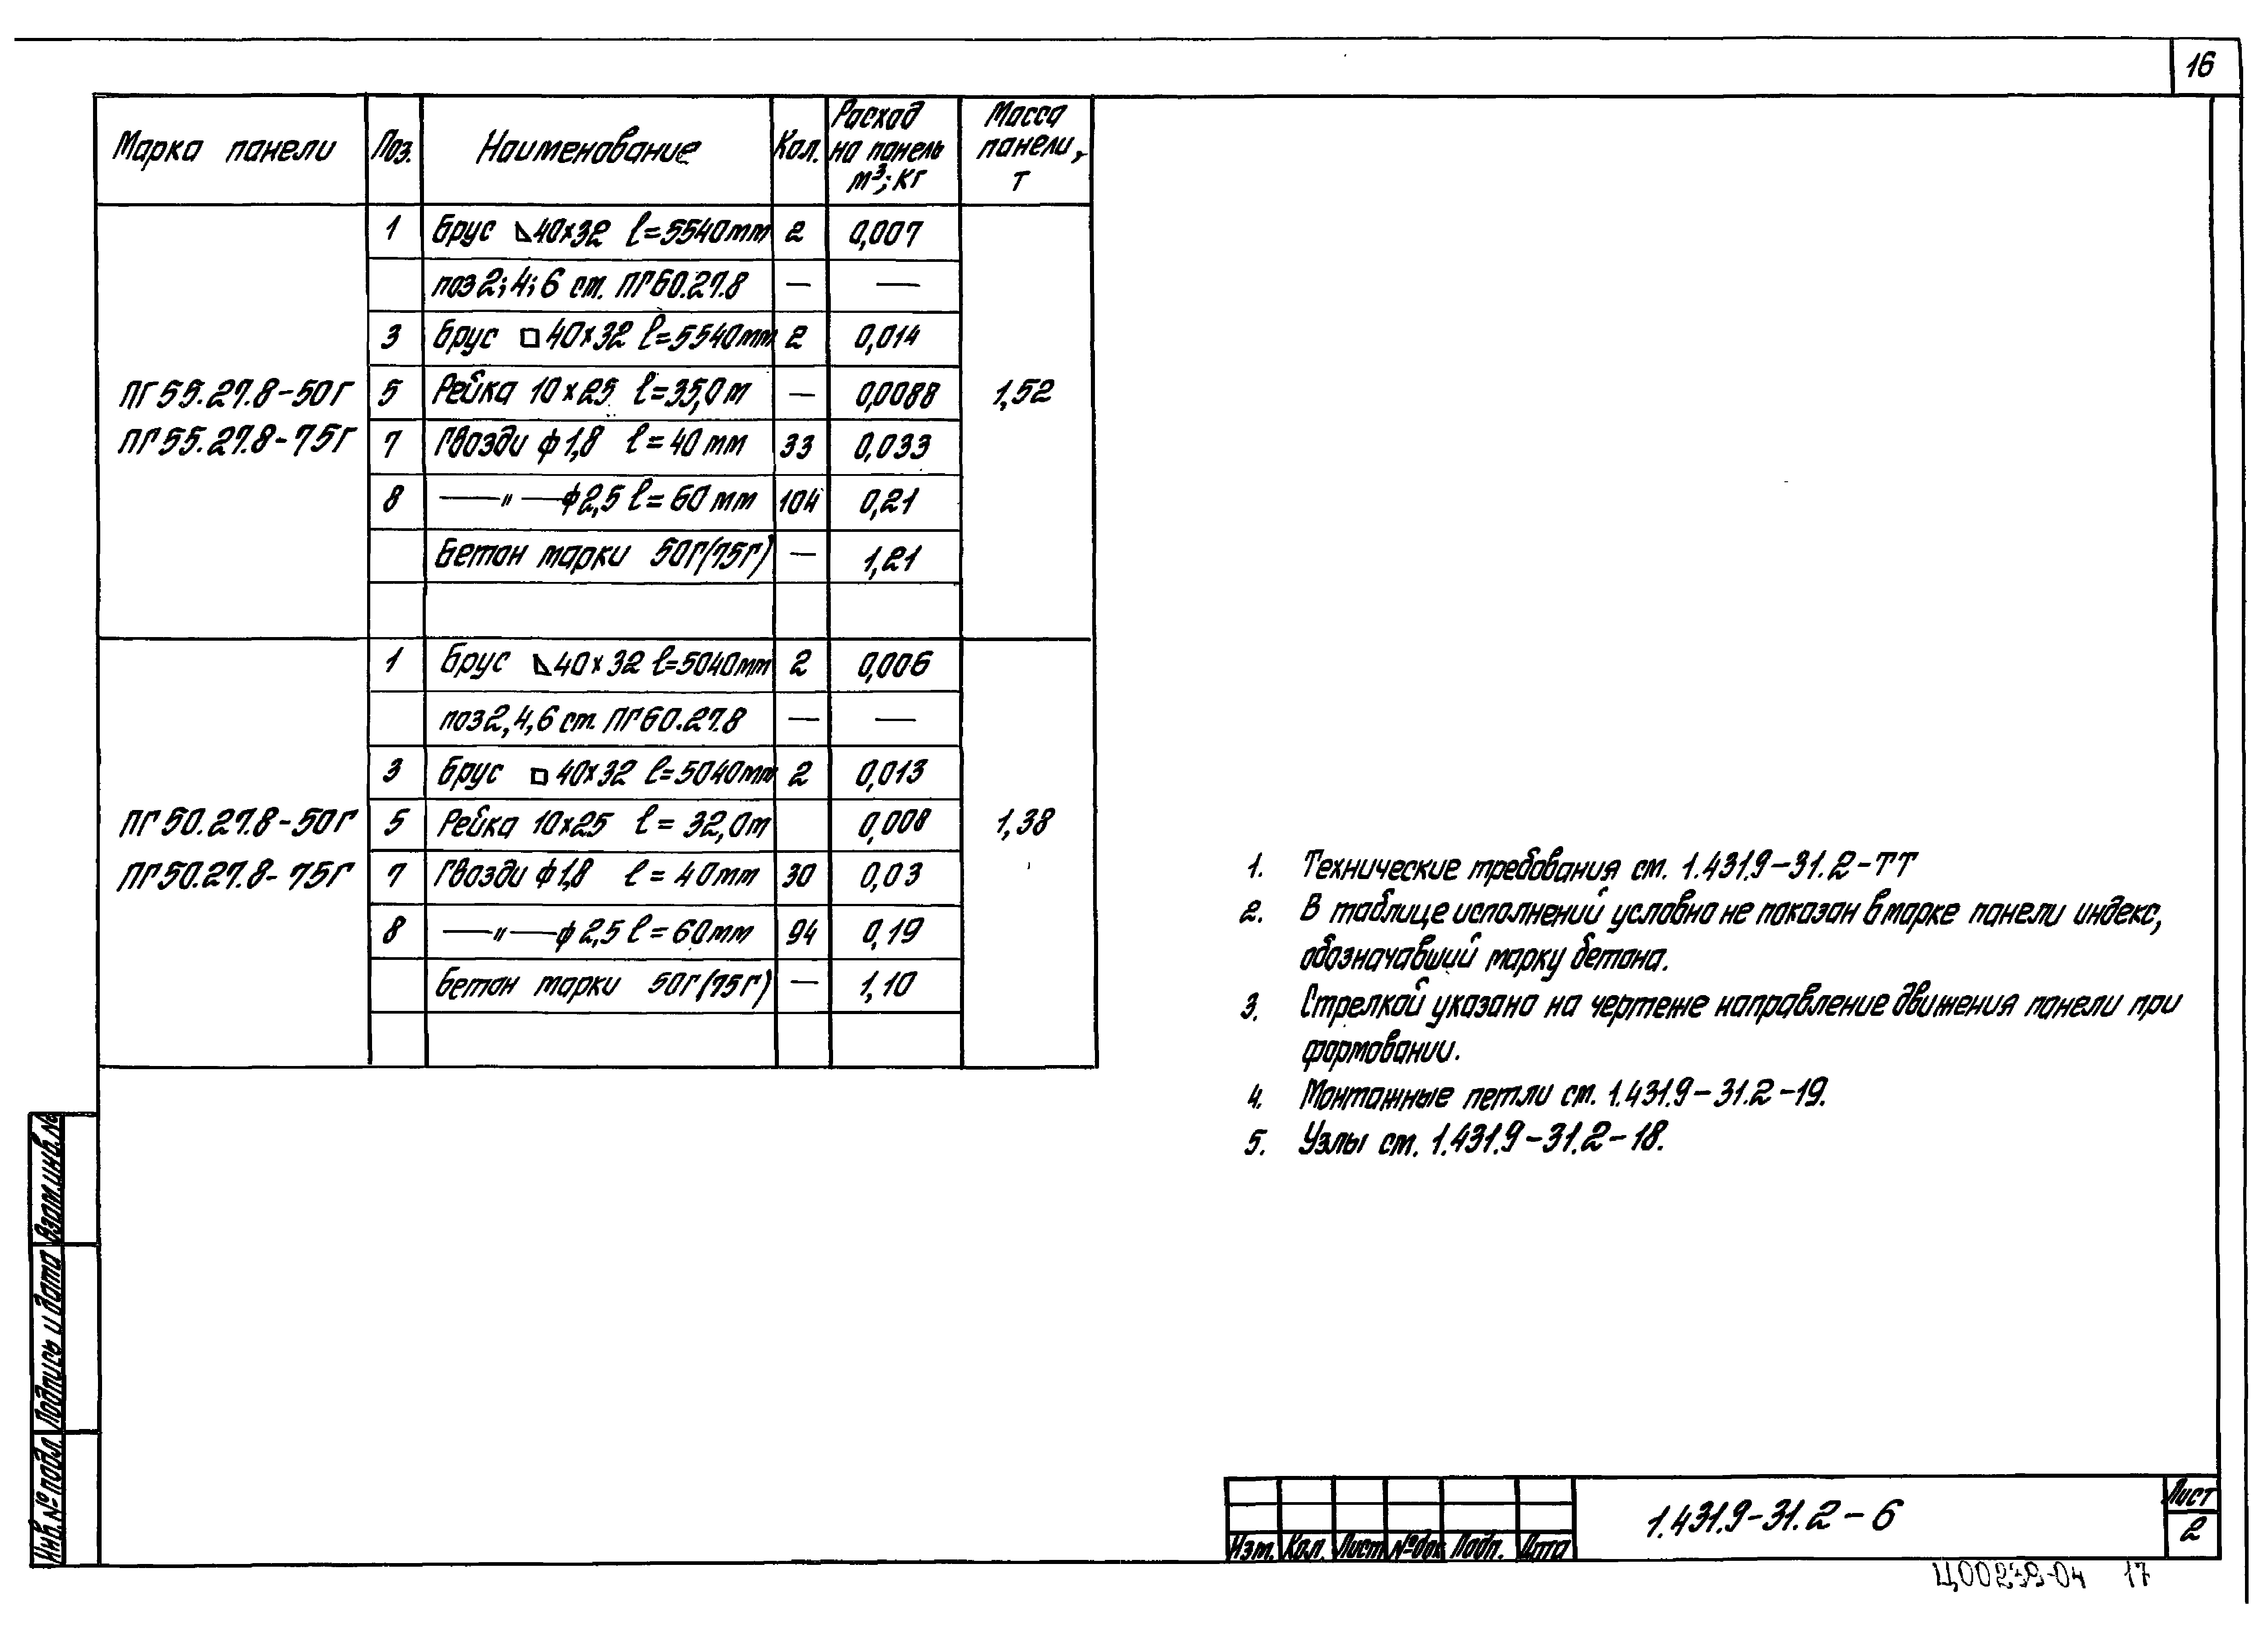 16
Марка панели Поз. Наименование Кол. Расход на панель м³; кг Масса панели, т
1 Брус 40×32 ℓ=5540мм 2 0,007
поз 2; 4; 6 см. ПГ60.27.8 — —
3 Брус □ 40×32 ℓ=5540мм 2 0,014
ПГ55.27.8-50Г 5 Рейка 10×25 ℓ=35,0м — 0,0088 1,52
ПГ55.27.8-75Г 7 Гвозди ф1,8 ℓ=40мм 33 0,033
8 —"— ф2,5 ℓ=60мм 104 0,21
Бетон марки 50Г(75Г) — 1,21
1 Брус 40×32 ℓ=5040мм 2 0,006
поз 2, 4, 6 см. ПГ60.27.8 — —
3 Брус □ 40×32 ℓ=5040мм 2 0,013
ПГ50.27.8-50Г 5 Рейка 10×25 ℓ=32,0м 0,008 1,38
ПГ50.27.8-75Г 7 Гвозди ф1,8 ℓ=40мм 30 0,03
8 —"— ф2,5 ℓ=60мм 94 0,19
Бетон марки 50Г(75Г) — 1,10
1. Технические требования см. 1.431.9-31.2-ТТ
2. В таблице исполнений условно не показан в марке панели индекс,
обозначавший марку бетона.
3. Стрелкой указано на чертеже направление движения панели при
формовании.
4. Монтажные петли см. 1.431.9-31.2-19.
5. Узлы см. 1.431.9-31.2-18.
Взам.инв.№
Подпись и дата
Инв.№ подл.
Изм. Кол. Лист №док Подп. Дата
1.431.9-31.2-6
Лист
2
Ц00239-04 17